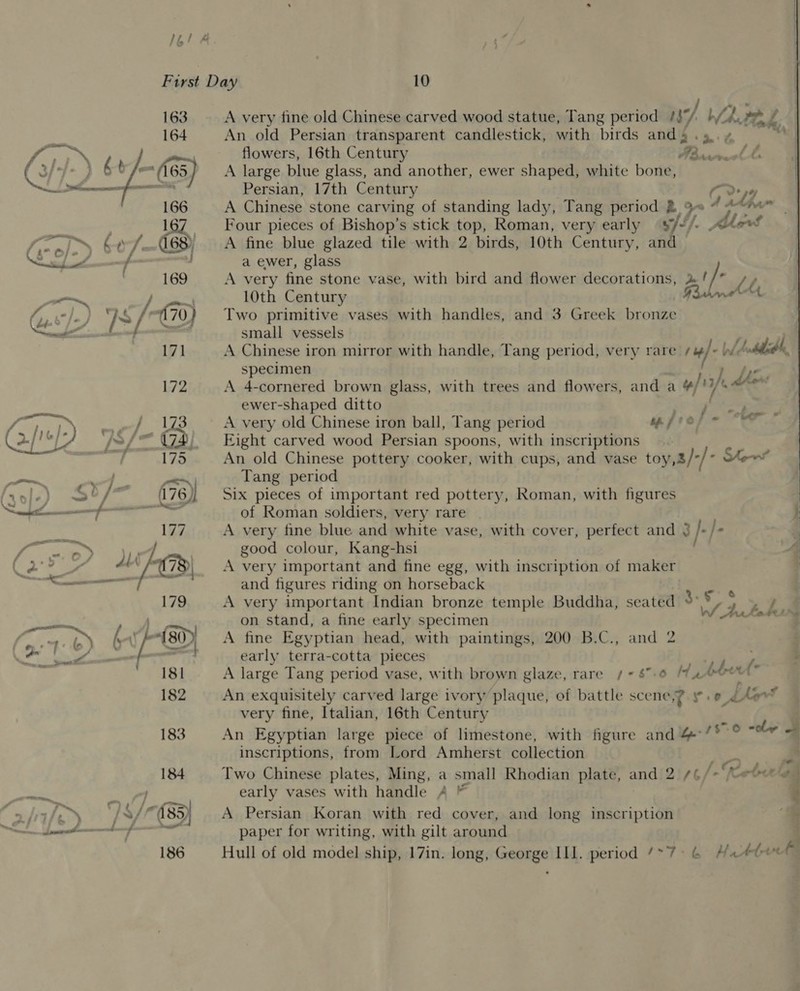 First Day 10
163 A very fine old Chinese carved wood statue, Tang period
164 An old Persian transparent candlestick, with birds and
flowers, 16th Century
165 A large blue glass, and another, ewer shaped, white bone,
Persian, 17th Century
166 A Chinese stone carving of standing lady, Tang period
167 Four pieces of Bishop's stick top, Roman, very early
168 A fine blue glazed tile with 2 birds, 10th Century, and
a ewer, glass
169 A very fine stone vase, with bird and flower decorations,
10th Century
170 Two primitive vases with handles, and 3 Greek bronze
small vessels
171 A Chinese iron mirror with handle, Tang period, very rare
specimen
172 A 4-cornered brown glass, with trees and flowers, and a
ewer-shaped ditto
173 A very old Chinese iron ball, Tang period
174 Eight carved wood Persian spoons, with inscriptions
175 An old Chinese pottery cooker, with cups, and vase toy,
Tang period
176 Six pieces of important red pottery, Roman, with figures
of Roman soldiers, very rare
177 A very fine blue and white vase, with cover, perfect and
good colour, Kang-hsi
178 A very important and fine egg, with inscription of maker
and figures riding on horseback
179 A very important Indian bronze temple Buddha, seated
on stand, a fine early specimen
180 A fine Egyptian head, with paintings, 200 B.C., and 2
early terra-cotta pieces
181 A large Tang period vase, with brown glaze, rare
182 An exquisitely carved large ivory plaque, of battle scene,
very fine, Italian, 16th Century
183 An Egyptian large piece of limestone, with figure and
inscriptions, from Lord Amherst collection
184 Two Chinese plates, Ming, a small Rhodian plate, and 2
early vases with handle
185 A Persian Koran with red cover, and long inscription
paper for writing, with gilt around
186 Hull of old model ship, 17in. long, George III. period